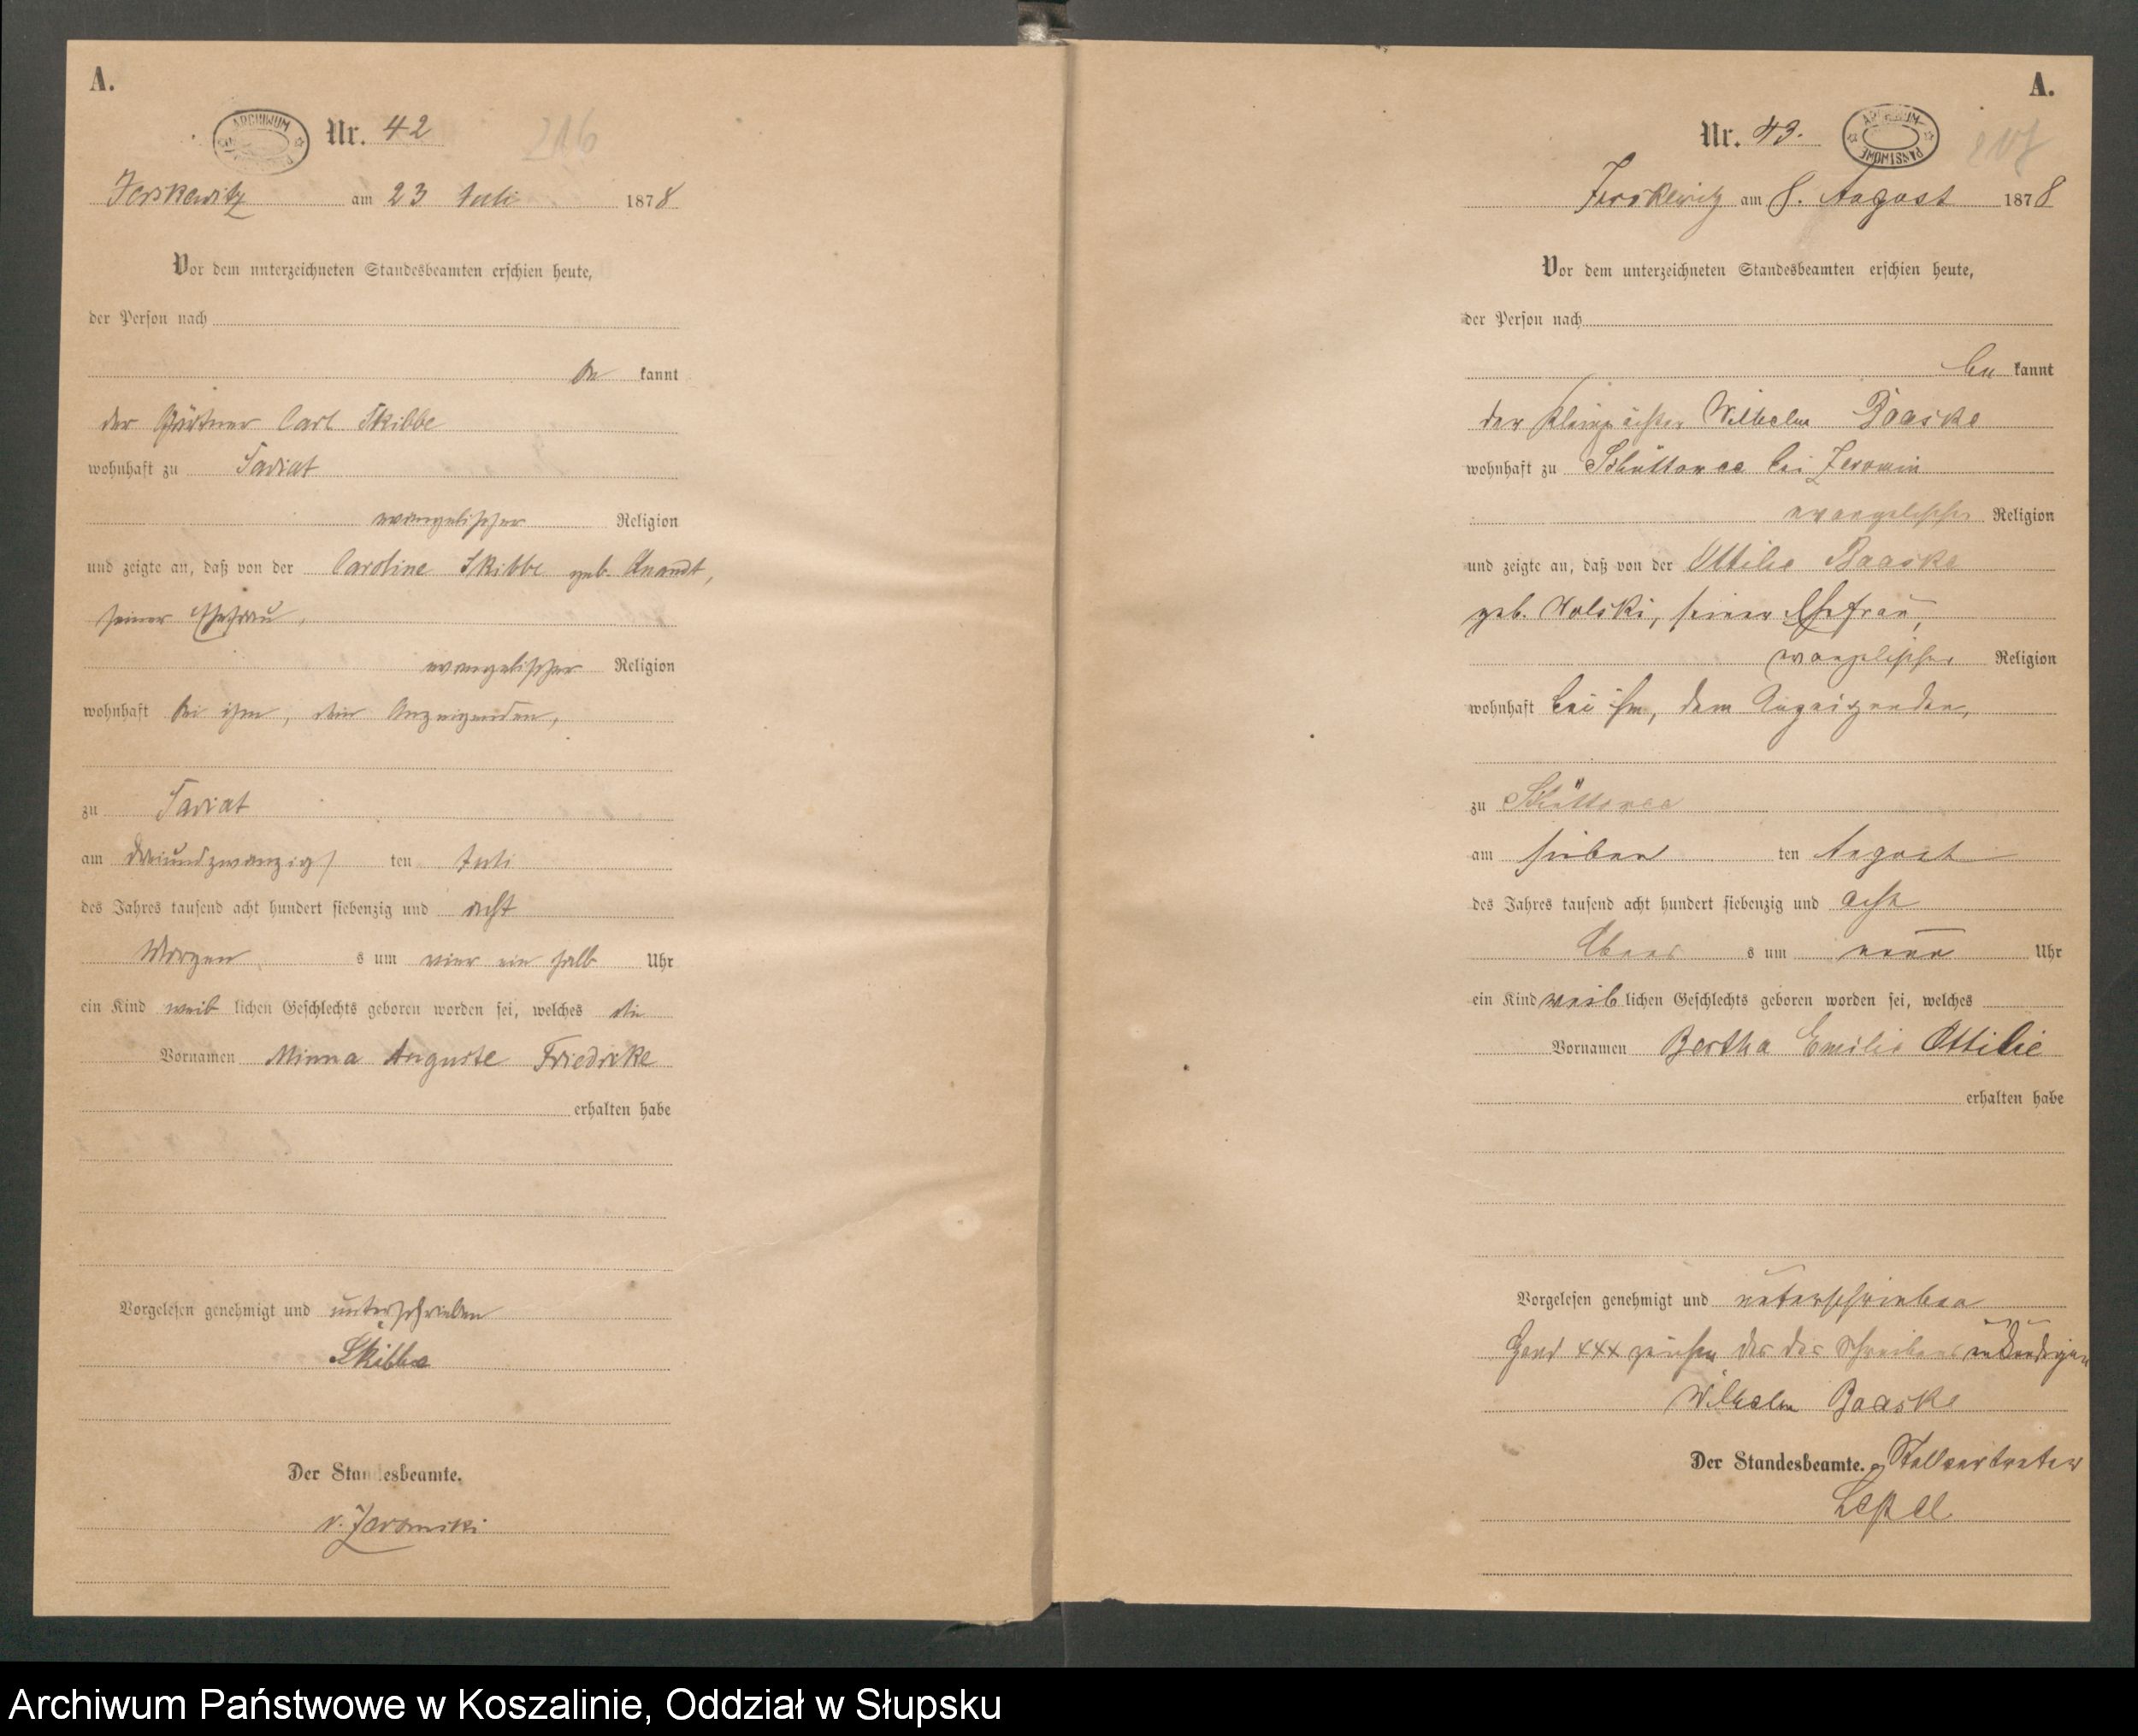 A.
ARCHIWUM
Nr. 42
216
Jerskewitz am 23 Juli 1878
Vor dem unterzeichneten Standesbeamten erschien heute,
der Person nach
be kannt
der Gärtner Carl Skibbe
wohnhaft zu
evangelischer Religion
und zeigte an, daß von der Caroline Skibbe geb. Knandt,
seiner Ehefrau,
evangelischer Religion
wohnhaft bei ihm, dem Anzeigenden,
zu
am dreiundzwanzig ten Juli
des Jahres tausend acht hundert siebenzig und acht
Morgen s um vier ein halb Uhr
ein Kind weib lichen Geschlechts geboren worden sei, welches die
Vornamen Minna Auguste Friedrike
erhalten habe
Vorgelesen genehmigt und unterschrieben
Skibbe
Der Standesbeamte.
v. Zeromski
A.
Nr. 43.
ARCHIWUM PAŃSTWOWE
217
Jerskewitz am 8. August 1878
Vor dem unterzeichneten Standesbeamten erschien heute,
der Person nach
be kannt
der Wilhelm Baaske
wohnhaft zu bei Zeromin
evangelischer Religion
und zeigte an, daß von der Ottilie Baaske
geb. Wolski, seiner Ehefrau,
evangelischer Religion
wohnhaft bei ihm, dem Anzeigenden,
zu
am sieben ten August
des Jahres tausend acht hundert siebenzig und acht
Abend s um neun Uhr
ein Kind weib lichen Geschlechts geboren worden sei, welches
Vornamen Bertha Emilie Ottilie
erhalten habe
Vorgelesen genehmigt und unterschrieben
Hand xxx zeichen des des Schreibens unkundigen
Wilhelm Baaske
Der Standesbeamte. Stellvertreter
Archiwum Państwowe w Koszalinie, Oddział w Słupsku